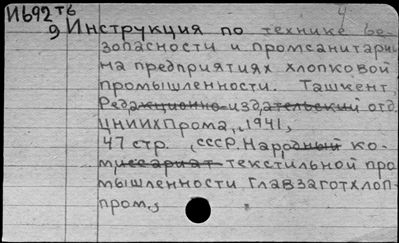 4
Иb92 т6
9 Инструкция по технике бе-
зопасности и промсанитарии
на предприятиях хлопковой
промышленности. Ташкент,
Редакционно-издательский отд.
ЦНИИХПрома, 1941,
47 стр. (СССР. Народный ко-
миссариат текстильной про
мышленности. Главзаготхлоп-
пром.,